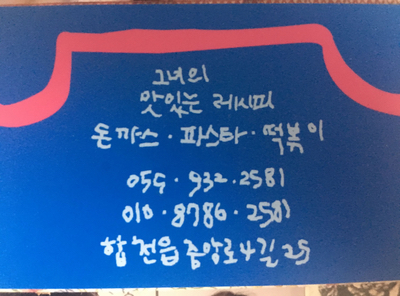 그녀의
맛있는 레시피
돈까스·파스타·떡볶이
055·932·2581
010·8786·2581
합천읍 중앙로4길 25